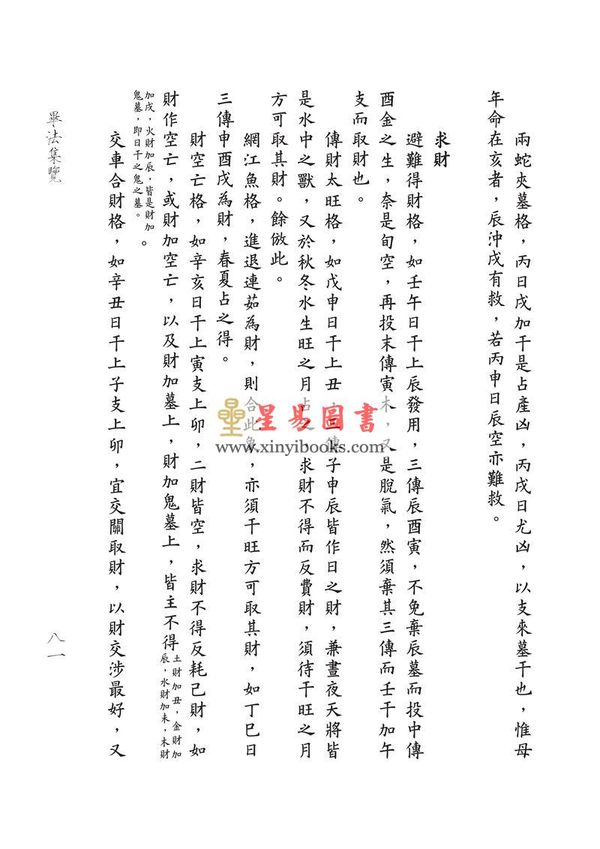 兩蛇夾墓格，丙日戌加干是占產凶，丙戌日尤凶，以支來墓干也，惟毋
年命在亥者，辰沖戌有救，若丙申日辰空亦難救。
求財
避難得財格，如壬午日干上辰發用，三傳辰酉寅，不免棄辰墓而投中傳
酉金之生，奈是旬空，再投末傳寅木，又是脫氣，然須棄其三傳而壬干加午
支而取財也。
傳財太旺格，如戊申日干上丑，三傳子申辰皆作日之財，兼晝夜天將皆
是水中之獸，又於秋冬水生旺之月占，求財不得而反費財，須待干旺之月
方可取其財。餘倣此。
網江魚格，進退連茹為財，則合此，亦須干旺方可取其財，如丁巳日
三傳申酉戌為財，春夏占之得。
財空亡格，如辛亥日干上寅支上卯，二財皆空，求財不得反耗己財，如
財作空亡，或財加空亡，以及財加墓上，財加鬼墓上，皆主不得土財加丑，金財加
辰，水財加未，木財
加戌，火財加辰，皆是財加
鬼墓，即日干之鬼之墓。。
交車合財格，如辛丑日干上子支上卯，宜交關取財，以財交涉最好，又
畢法集覽
八一
星易圖書
www.xinyibooks.com